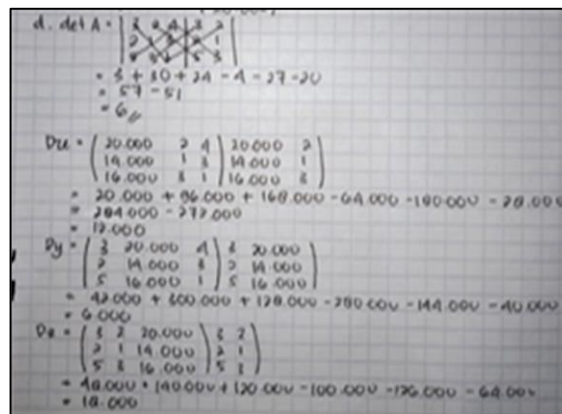 d. det A = | 3 2 4 | 3 2 |
2 1 3 | 2 1
5 3 1 | 5 3
= 3 + 30 + 24 - 4 - 27 - 20
= 57 - 51
= 6 //
Dx = ( 20.000 2 4 | 20.000 2 )
14.000 1 3 | 14.000 1
16.000 3 1 | 16.000 3
= 20.000 + 96.000 + 168.000 - 64.000 - 180.000 - 28.000
= 284.000 - 272.000
= 12.000
Dy = ( 3 20.000 4 | 3 20.000 )
2 14.000 3 | 2 14.000
5 16.000 1 | 5 16.000
= 42.000 + 300.000 + 128.000 - 280.000 - 144.000 - 40.000
= 6.000
( 3 2 20.000 | 3 2 )
2 1 14.000 | 2 1
5 3 16.000 | 5 3
= 48.000 + 140.000 + 120.000 - 100.000 - 126.000 - 64.000
= 18.000